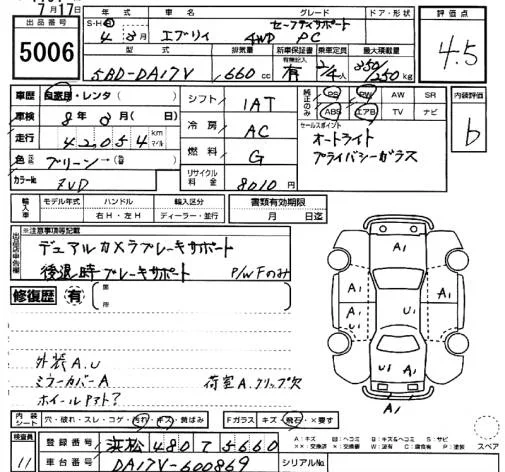 7月17日
出品番号 5006
年式 車名 グレード ドア・形状 評価点
S・H・R 4年3月 エブリィ セーフティサポート 4WD PC 4.5
型式 排気量 新車保証書 乗車定員 最大積載量
5BD-DA17V 660cc 有 2/4人 350/250kg
車歴 自家用・レンタ( ) シフト 1AT 純正のみ PS PW AW SR 内装評価
車検 8年3月( 日) 冷房 AC ABS エアB TV ナビ b
走行 42,054 km マイル 燃料 G セールスポイント オートライト
色 グリーン→( ) リサイクル料金 8010円 プライバシーガラス
カラーNo ZVD
輸入車 モデル年式 ハンドル 輸入区分 書類有効期限
右H・左H ディーラー・並行 月 日迄
※注意事項等記載
デュアルカメラブレーキサポート
後退時ブレーキサポート P/WFのみ
修復歴 有 箇所
A1
A1 A1 A1
U1
U1 A1
A1
外装A.U
ミラーカバーA 荷室A.クリップ欠
内装シート 穴・破れ・スレ・コゲ・汚れ・キズ・黄ばみ Fガラス キズ・飛石・×要す
検査員 11 登録番号 浜松480て5660
A:キズ U:ヘコミ B:キズ&ヘコミ S:サビ
××:交換済 ×:要交換 W:波 C:腐食 P:塗装
スペア
車台番号 DA17V-600869 シリアルNo.